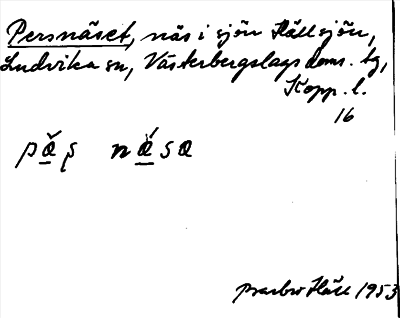 Persnäset, näs i sjön Hällsjön,
Ludvika sn, Västerbergslags doms. tg,
Kopp. l.
16
pæ̌ʂ næ̌sa
Häll 1953